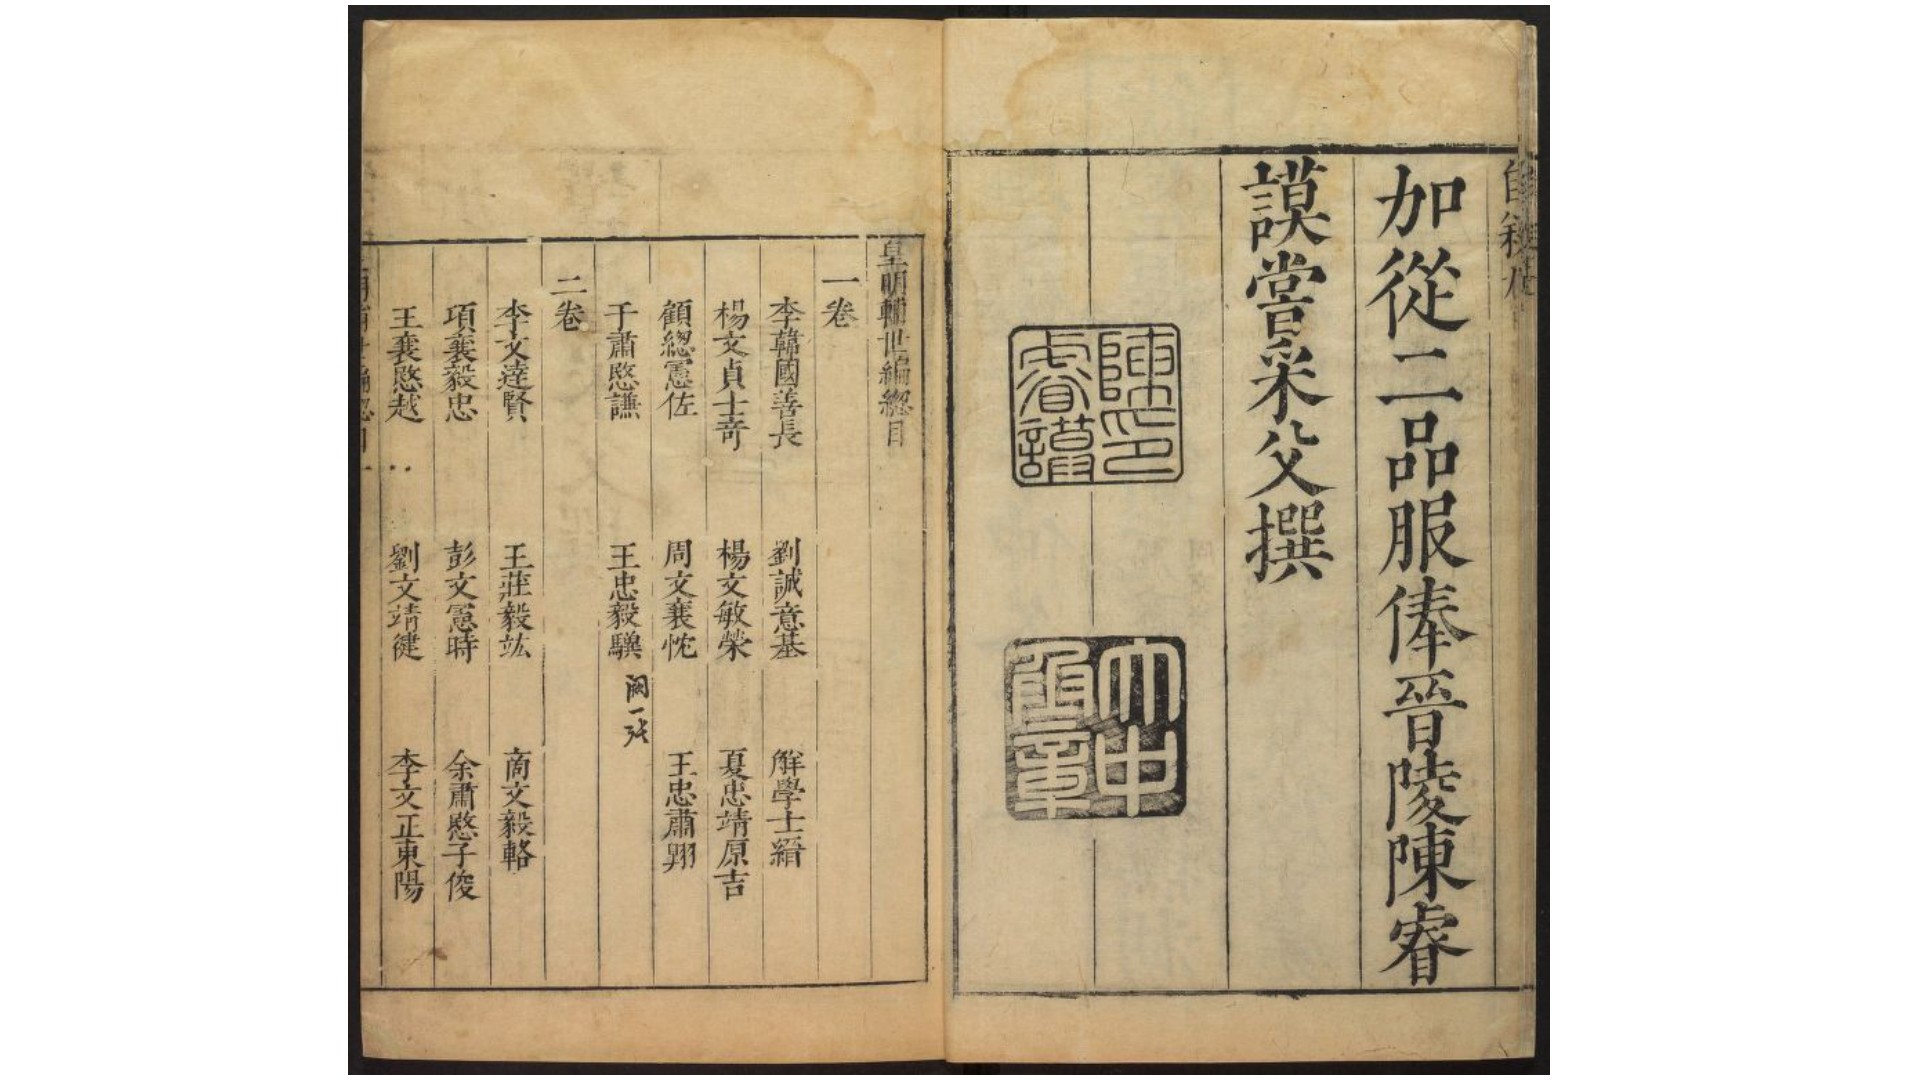 加從二品服俸晉陵陳睿
謨嘗采父撰
陳印
睿謨
大中
皇明輔世編總目
一卷
李韓國善長 劉誠意基 解學士縉
楊文貞士奇 楊文敏榮 夏忠靖原吉
顧總憲佐 周文襄忱 王忠肅翱
于肅愍謙 王忠毅驥
闕一張
二卷
李文達賢 王莊毅竑 商文毅輅
項襄毅忠 彭文憲時 余肅愍子俊
王襄愍越 劉文靖健 李文正東陽